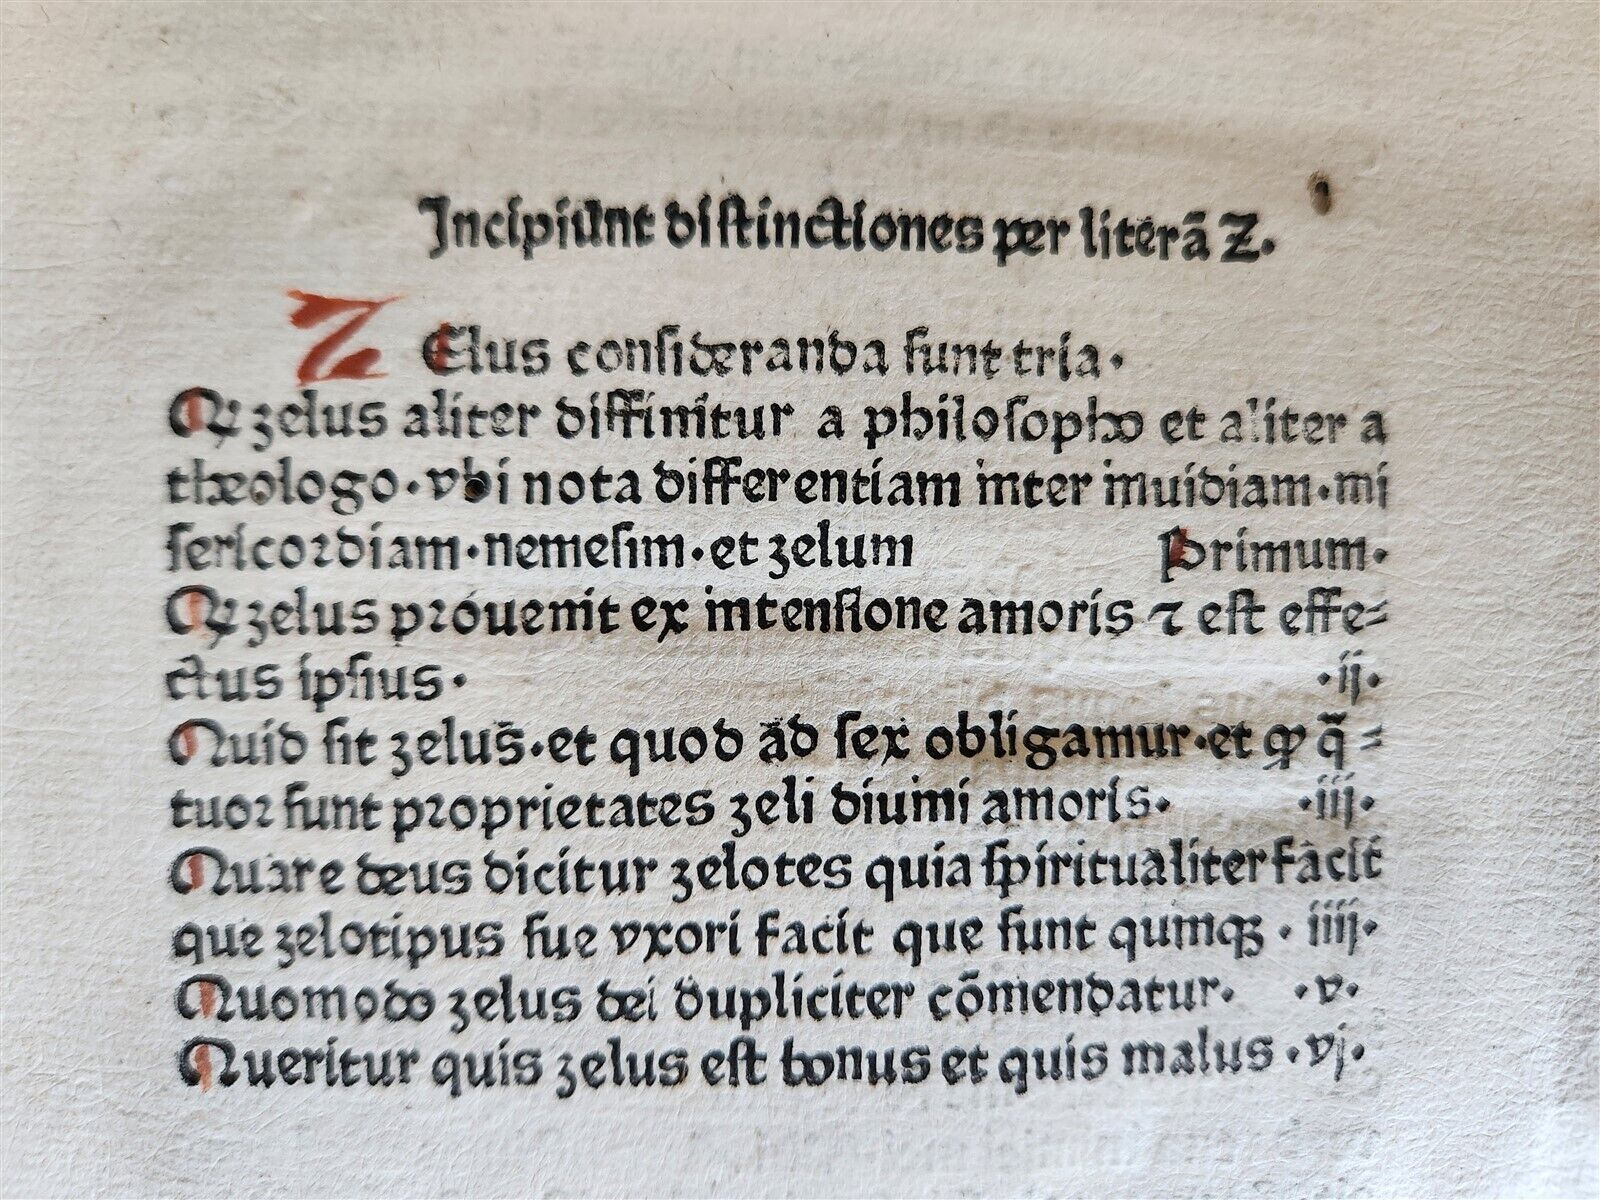 Incipiunt distinctiones per literā Z.
Z Elus consideranda sunt tria.
Qꝛ zelus aliter diffinitur a philosopho et aliter a
theologo·vbi nota differentiam inter inuidiam·mi
sericordiam·nemesim·et zelum Primum·
Qꝛ zelus prouenit ex intensione amoris ⁊ est effe⸗
ctus ipsius· ·ij·
Quid sit zelus·et quod ad sex obligamur·et ꝙ q̄⸗
tuor sunt proprietates zeli diuini amoris· ·iij·
Quare deus dicitur zelotes quia spiritualiter facit
que zelotipus sue vxori facit que sunt quinqꝫ · iiij·
Quomodo zelus dei dupliciter cōmendatur· ·v·
Queritur quis zelus est bonus et quis malus ·vj·